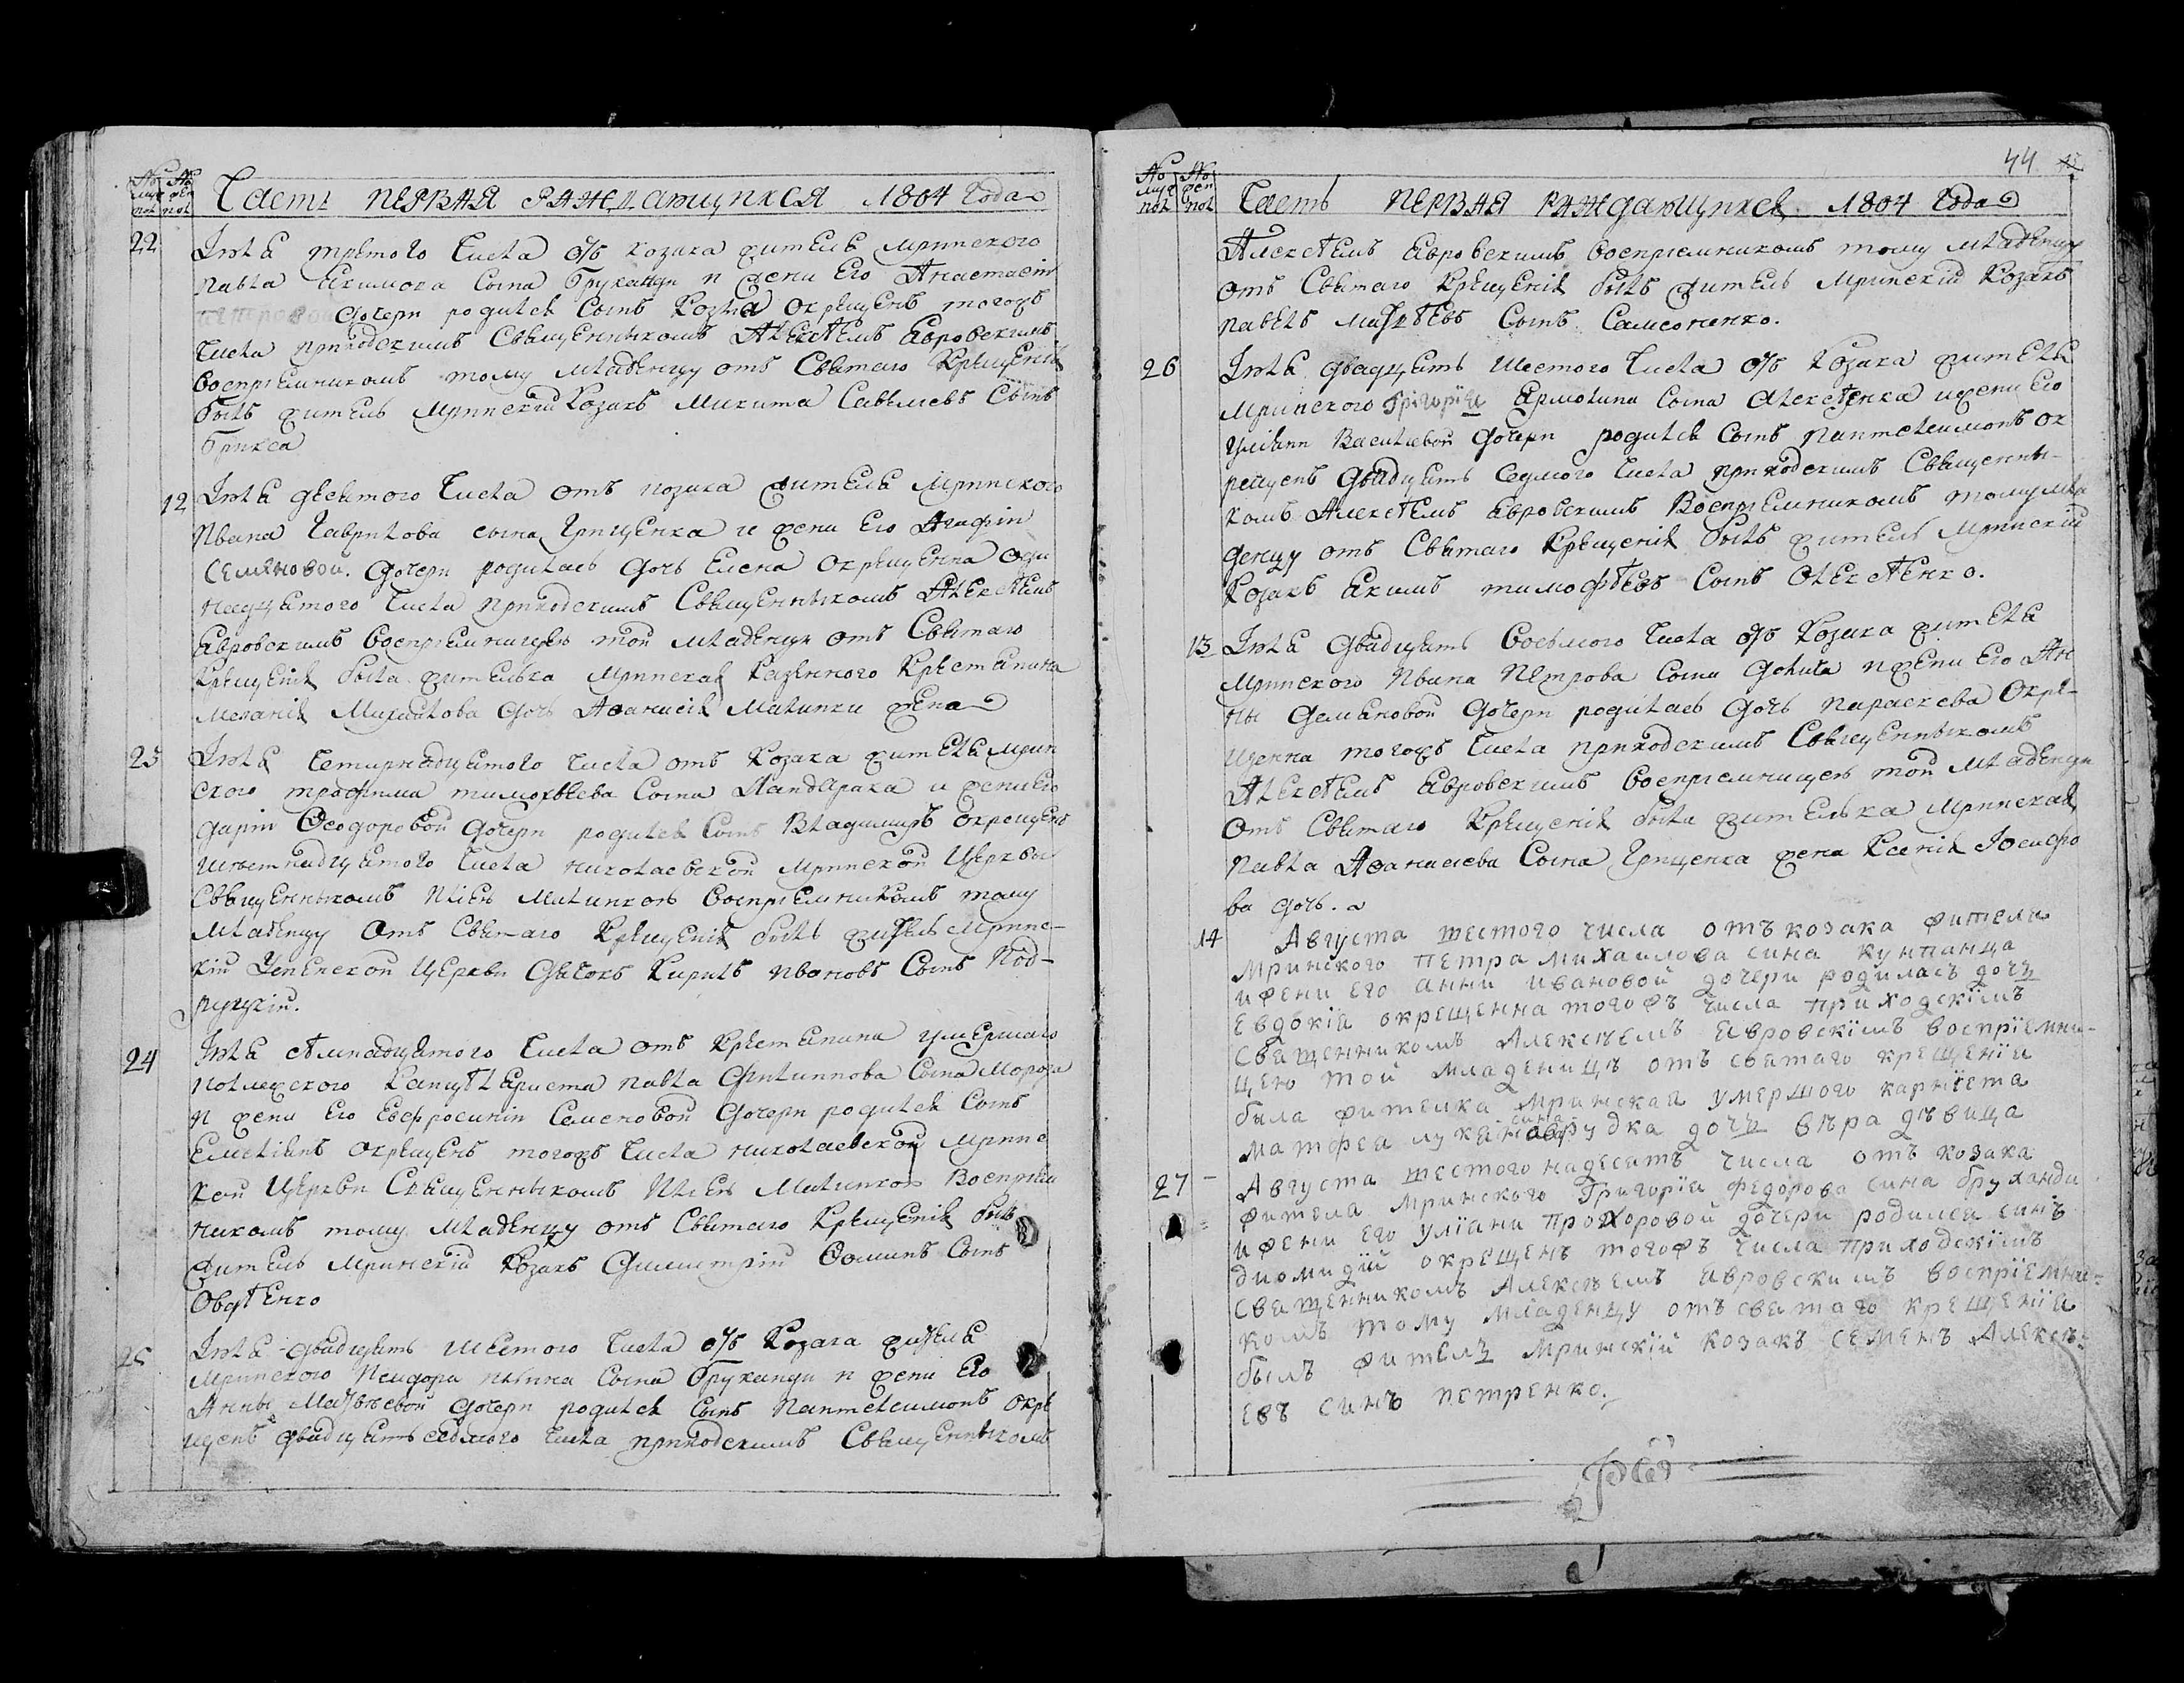 No No
муж жен
пол пол
Часть ПЕРВАЯ РАЖДающихся 1804 Года
22 Июля третого числа отъ козака жителя мринского
павла Якимова сына Бруханди и жени Его Анастасіи
петровой дочери родился сынъ Козма окрещенъ тогожъ
числа приходскимъ Священникомъ Алексѣемъ Явровскимъ
восприемникомъ тому младенцу отъ Святаго Крещенія
былъ житель мринскій Козакъ Микита Савелиевъ Сынъ
Брикса
12 Июля десятого числа отъ козака жителя мринского
Ивана Гаврилова сына Грищенка и жени Его Агафіи
Семеновой дочери родилась дочь Елена окрещенна оди
надцятого числа приходскимъ Священникомъ Алексѣемъ
Явровскимъ восприемницею той младенци отъ Святаго
Крещенія была жителька мринская казенного Крестянина
Меланія Михайлова дочь Афанасія Малинки жена
23 Июля четирнадцятого числа отъ Козака жителя мрин
ского трофима тимофѣева сына Ландарака и жени его
дарии Феодоровой дочери родился сынъ Владимиръ окрещенъ
шестнадцятого числа николаевской мринской Церкви
Священникомъ Илиею Малинкою восприемникомъ тому
младенцу отъ Святаго Крещенія былъ житель мринс-
кій Успенской Церкви дячокъ Кирилъ ивановъ Сынъ Под-
руцкій.
24 Июля семнадцятого числа отъ Крестянина умершаго
полмежского Канцеляриста павла Филиппова Сына Мороза
и жени Его Евфросиніи Семеновой дочери родился сынъ
Емеліянъ окрещенъ тогожъ числа николаевской мринс
кой Церкви Священникомъ Илиею Малинкою Восприем
никомъ тому младенцу отъ Святаго Крещенія былъ
житель мринскій Козакъ Димитрій Фоминъ Сынъ
Овдѣенко
25 Июля двадцять шестого числа отъ Козака жителя
мринского Исидора иллина Сына Бруханди и жени Его
Анны Матвѣевой дочери родился сынъ Пантелеимонъ окре
щенъ двадцять седмого числа приходскимъ Священникомъ
44
No No
муж жен
пол пол
Часть ПЕРВАЯ РАЖДающихся 1804 Года
Алексѣемъ Явровскимъ восприемникомъ тому младенцу
отъ Святаго Крещенія былъ житель мринскій Козакъ
павелъ матѣевъ Сынъ Самсоненко.
26 Июля двадцять шестого числа отъ Козака жителя
мринского Григорія Ярмолина Сына Алексѣенка и жени его
уліяни Василиевой дочери родился сынъ пантелеимонъ ок
рещенъ двадцять седмого числа приходскимъ Священни-
комъ Алексѣемъ Явровскимъ Восприемникомъ тому мла
денцу отъ Святаго Крещенія былъ житель мринскій
Козакъ Якимъ тимофѣевъ Сынъ Олексѣенко.
13 Июля двадцять восьмого числа отъ Козака жителя
мринского Ивана Петрова Сына и жени Его Ан
ны Демяновой дочери родилась дочь параскева Окре-
щенна тогожъ числа приходскимъ Священникомъ
Алексѣемъ Явровскимъ восприемницею той младенци
отъ Святаго Крещенія была жителька мринская
павла Афанасиева Сына Грищенка жена Ксенія Іосифо
ва дочь.
14 Августа шестого числа отъ козака жителя
мринского петра михаилова сина кунпанца
и жени его анни ивановой дочери родиласъ дочъ
евдокіа окрещенна тогожъ числа приходскїимъ
священникомъ Алексѣемъ Явровскїимъ воспрїемни-
цею той младеницѣ отъ святаго крещенїа
была жителка мринская умершого карнїета
матфеа лукан сина рудка дочъ вѣра дѣвица
27 Августа шестогонадесатъ числа отъ козака
жителя мринского григорїа федорова сина бруханди
и жени его улїани прохоровой дочери родился синъ
диомидїй окрещенъ тогожъ числа приходскїимъ
священникомъ Алексѣемъ Явровскимъ воспрїемни-
комъ тому младенцу отъ святаго крещенїа
былъ жителъ мринскїй козакъ семенъ Алексѣ-
евъ синъ петренко.